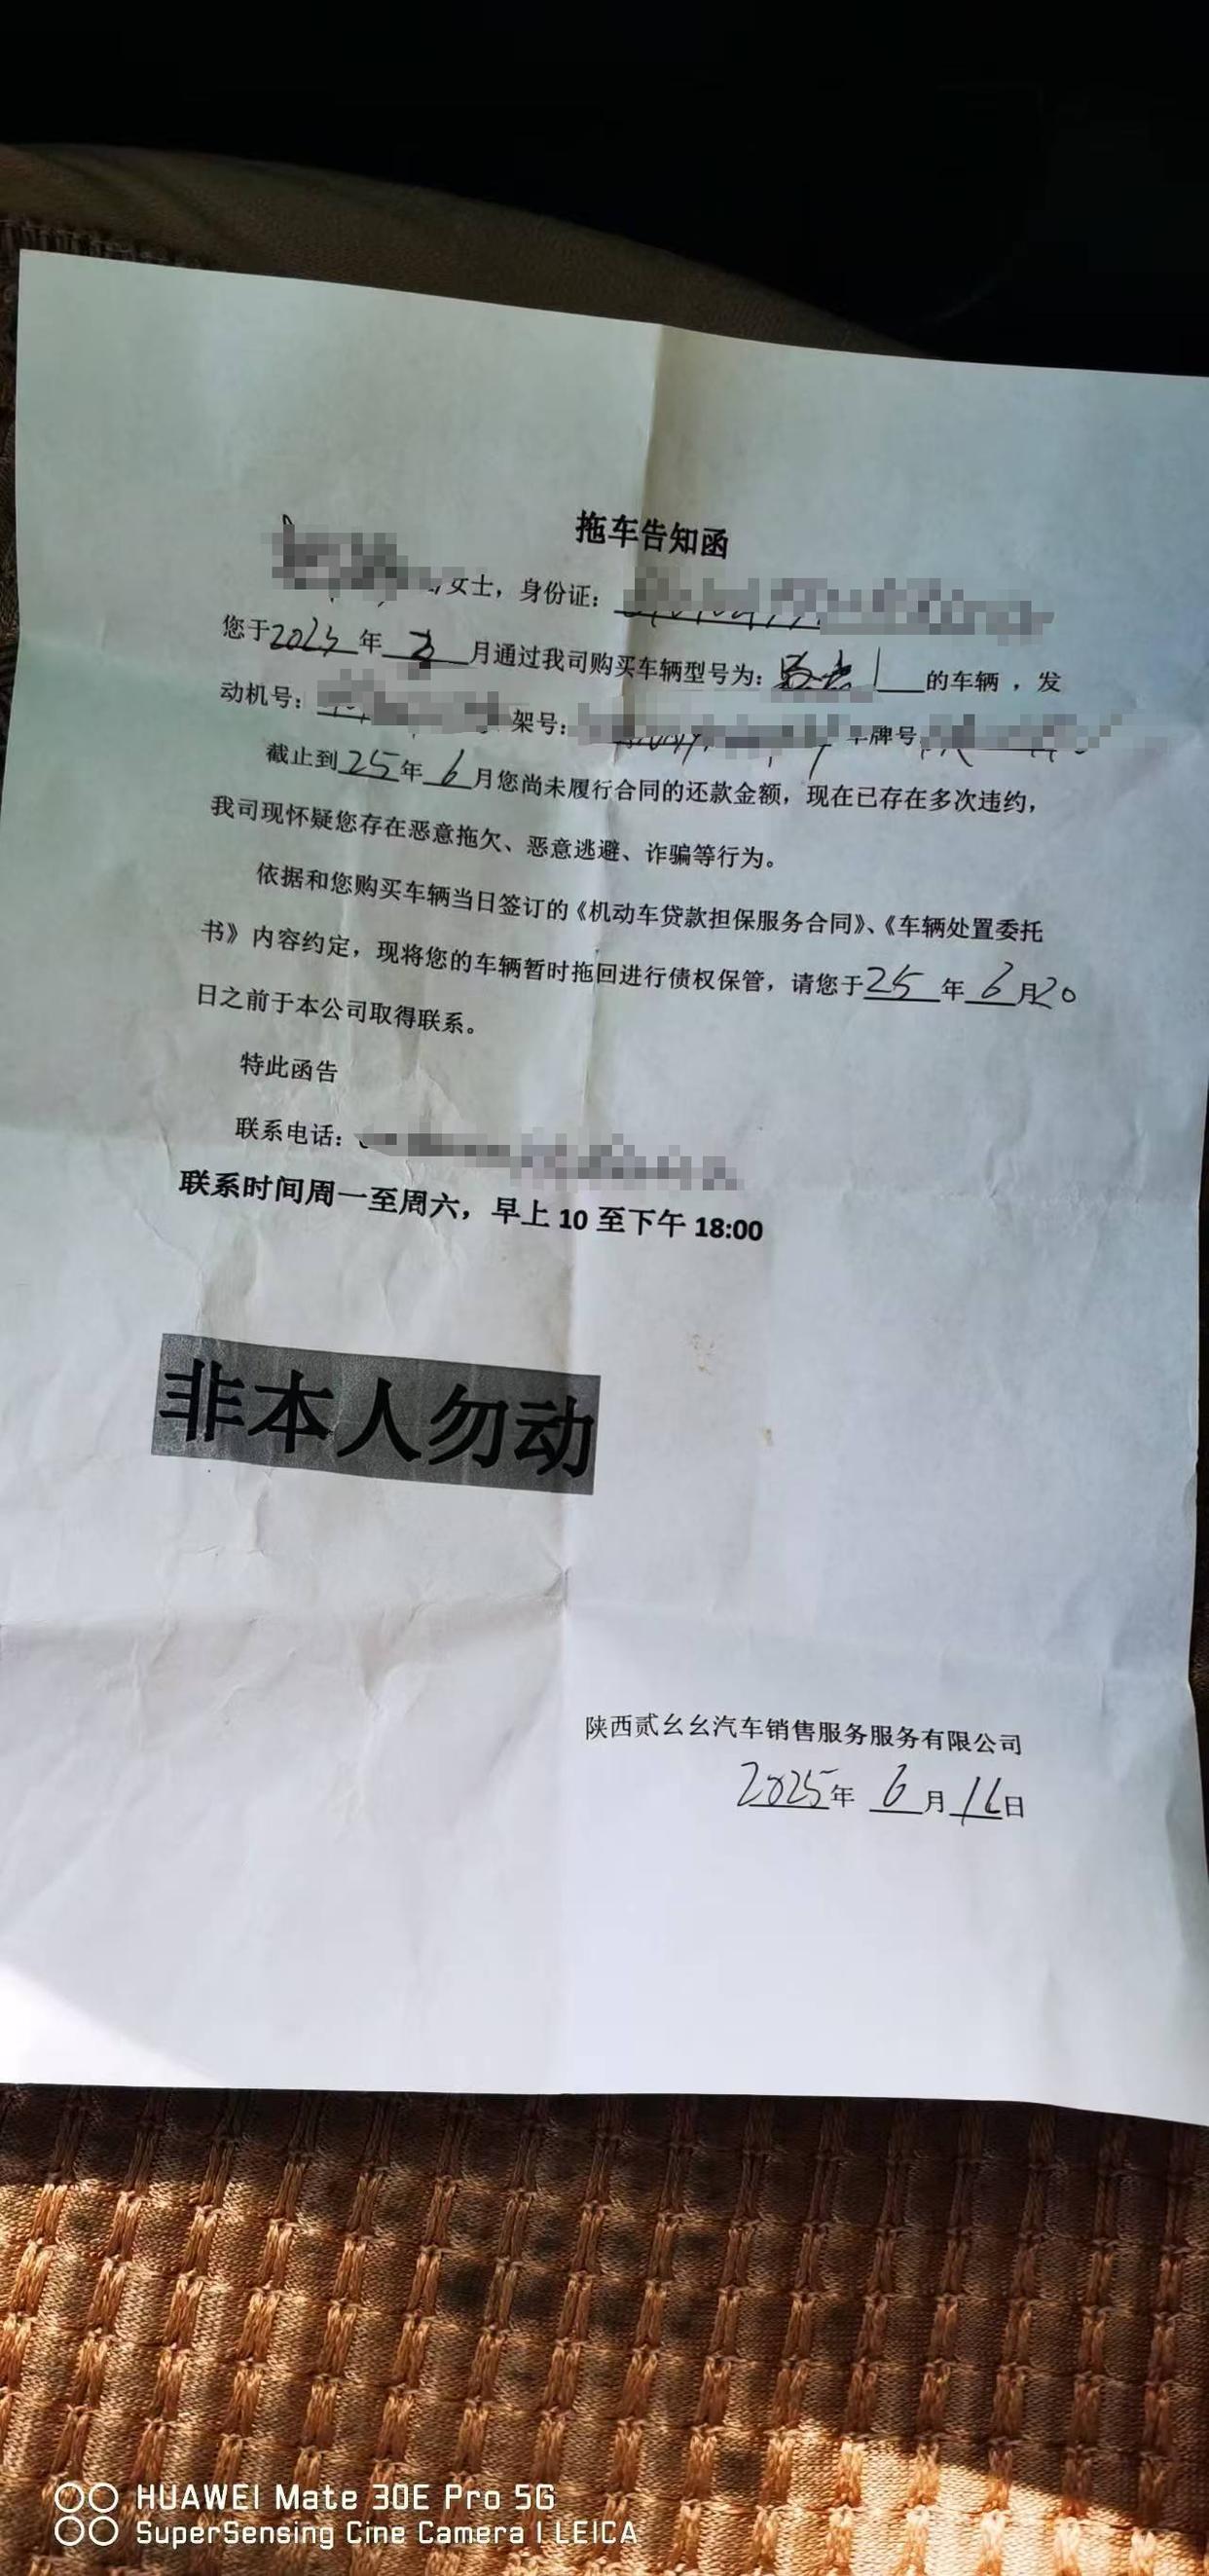 拖车告知函
女士，身份证：
您于2023年3月通过我司购买车辆型号为： 的车辆，发
动机号： 架号： 车牌号
截止到25年6月您尚未履行合同的还款金额，现在已存在多次违约，
我司现怀疑您存在恶意拖欠、恶意逃避、诈骗等行为。
依据和您购买车辆当日签订的《机动车贷款担保服务合同》、《车辆处置委托
书》内容约定，现将您的车辆暂时拖回进行债权保管，请您于25年6月20
日之前于本公司取得联系。
特此函告
联系电话：
联系时间周一至周六，早上10至下午18:00
非本人勿动
陕西贰幺幺汽车销售服务服务有限公司
2025年6月16日
HUAWEI Mate 30E Pro 5G
SuperSensing Cine Camera | LEICA